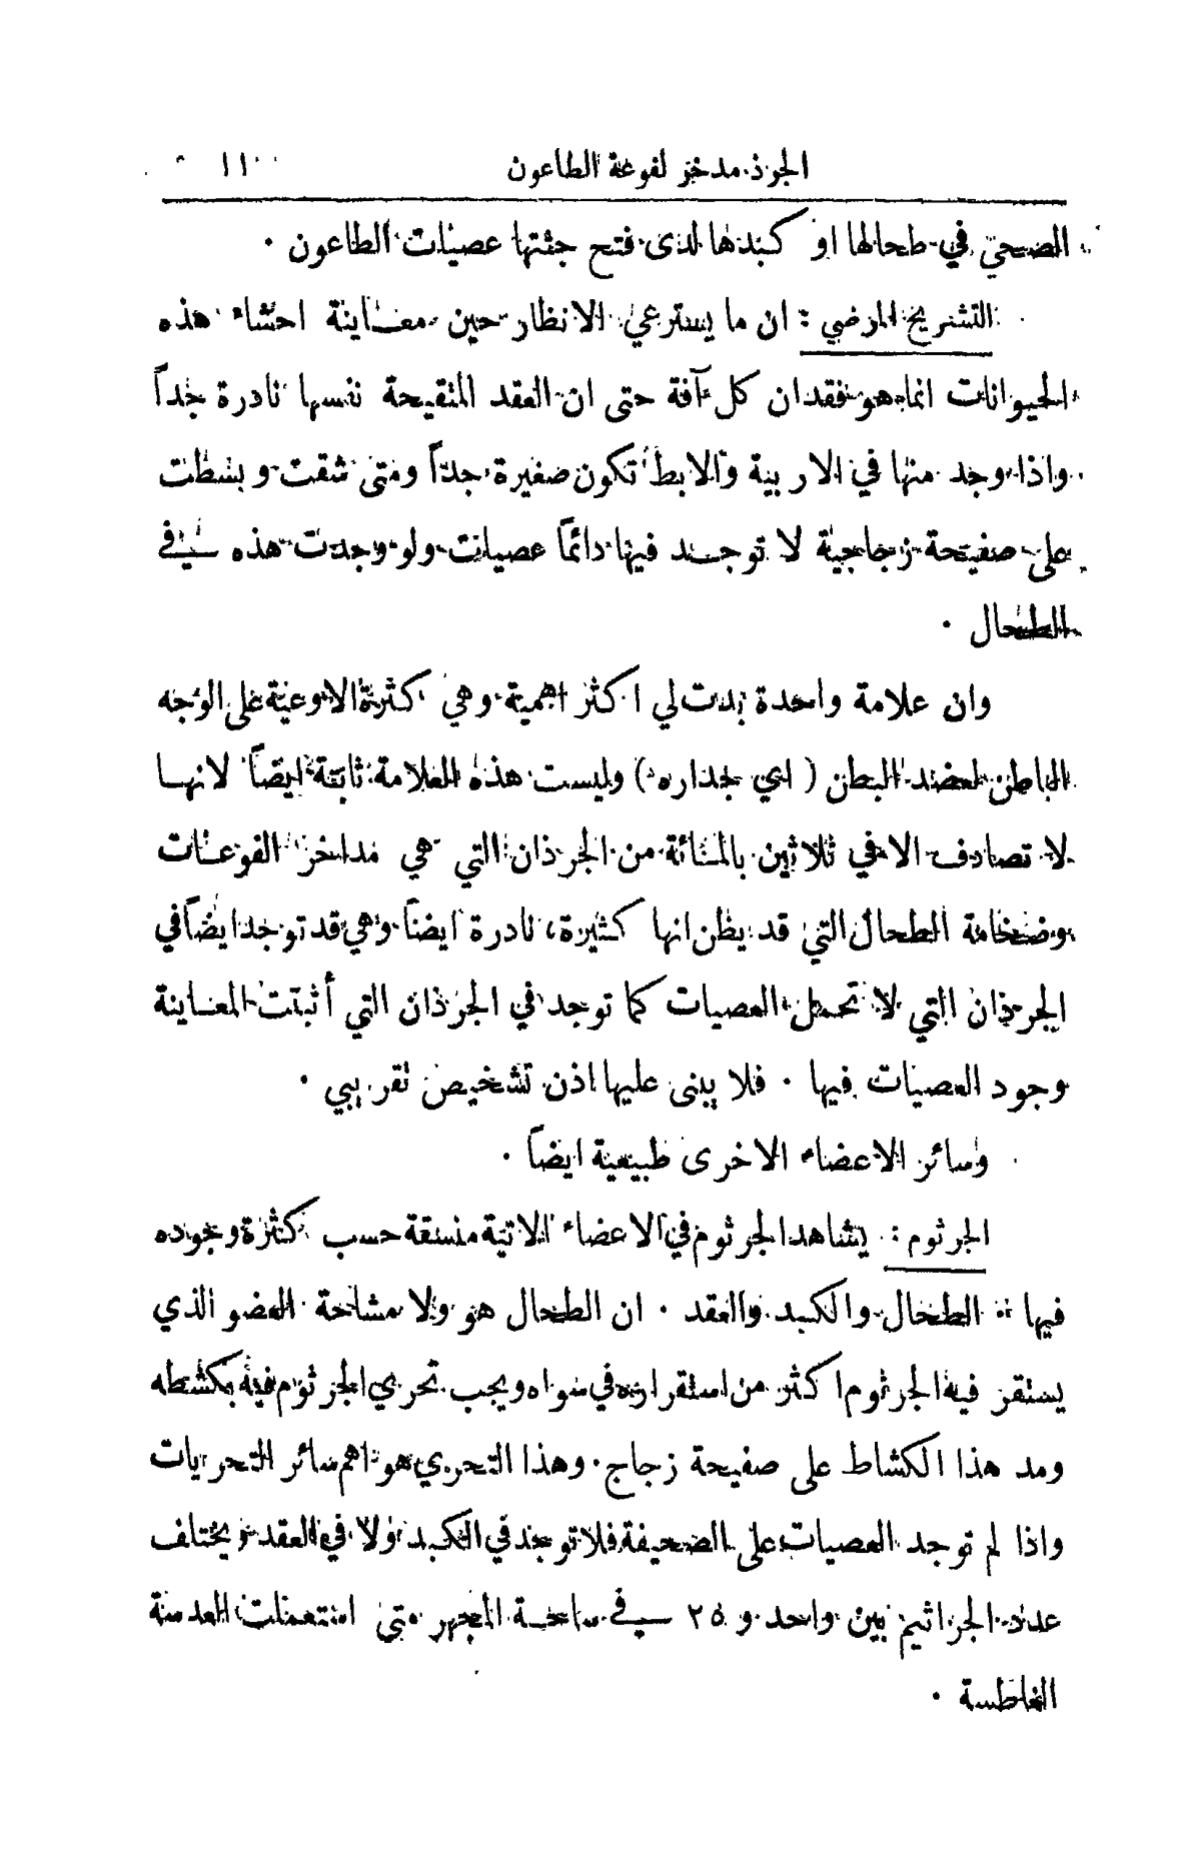 الجرذ مدخر لفوعة الطاعون
الصحي في طحالها او كبدها لدى فتح جثتها عصيات الطاعون .
التشريح المرضي : ان ما يسترعي الانظار حين معـاينة احشاء هذه
الحيوانات انما هو فقدان كل آفة حتى ان العقد المتقيحة نفسها نادرة جداً
واذا وجد منها في الاربية والابط تكون صغيرة جداً ومتى شقت وبسطت
على صفيحة زجاجية لا توجـد فيها دائماً عصيات ولو وجدت هذه في
الطحال .
وان علامة واحدة بدت لي اكثر اهمية وهي كثرة الاوعية على الوجه
الباطن لعضد البطن ( اي جداره ) وليست هذه العلامة ثابتة ايضاً لانهـا
لا تصادف الا في ثلاثين بالمائة من الجرذان التي هي مداخر الفوعات
وضخامة الطحال التي قد يظن انها كثيرة، نادرة ايضاً وهي قد توجد ايضاً في
الجرذان التي لا تحمل العصيات كما توجد في الجرذان التي أثبتت المعـاينة
وجود العصيات فيها . فلا يبنى عليها اذن تشخيص تقريبي .
وسائر الاعضاء الاخرى طبيعية ايضاً .
الجرثوم : يشاهد الجرثوم في الاعضاء الاتية منسقة حسب كثرة وجوده
فيها : الطحال والكبد والعقد . ان الطحال هو ولا مشاحة العضو الذي
يستقر فيه الجرثوم اكثر من استقراره في سواه ويجب تحري الجرثوم فيه بكشطه
ومد هذا الكشاط على صفيحة زجاج . وهذا التحري هو اهم سائر التحريات
واذا لم توجد العصيات على الصحيفة فلا توجد في الكبد ولا في العقد ويختلف
عدد الجراثيم بين واحد و ٢٥ في ساحـة المجهر متى استعملت العدسة
الغاطسة .